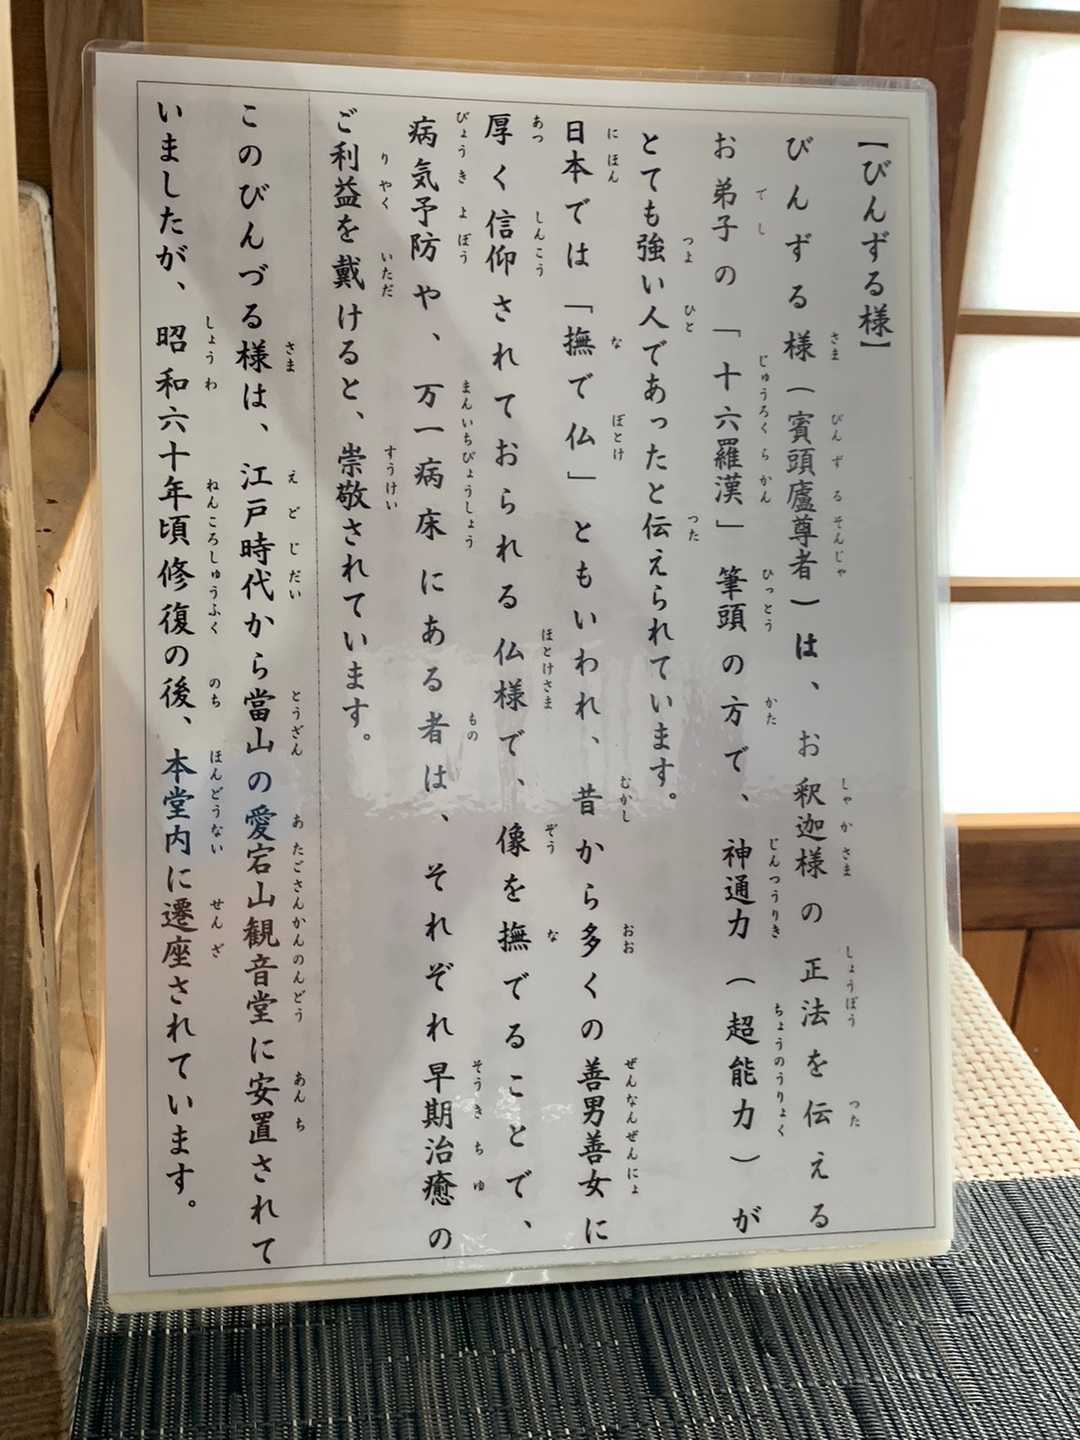 【びんずる様】
びんずる様（賓頭廬尊者）は、お釈迦様の正法を伝える
お弟子の「十六羅漢」筆頭の方で、神通力（超能力）が
とても強い人であったと伝えられています。
日本では「撫で仏」ともいわれ、昔から多くの善男善女に
厚く信仰されておられる仏様で、像を撫でることで、
病気予防や、万一病床にある者は、それぞれ早期治癒の
ご利益を戴けると、崇敬されています。
このびんづる様は、江戸時代から當山の愛宕山観音堂に安置されて
いましたが、昭和六十年頃修復の後、本堂内に遷座されています。